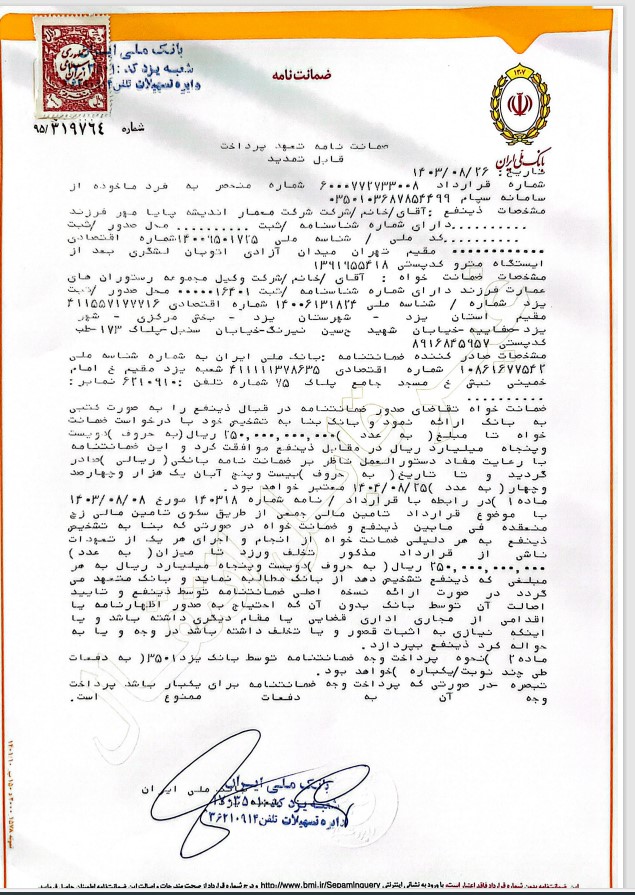 بانک ملی ایران
شعبه یزد کد:
دایره تسهیلات تلفن
ضمانت‌نامه
شماره ۹۵/۳۱۹۷۶۴
بانک ملی ایران
ضمانت نامه تعهد پرداخت
قابل تمدید
تاریخ: ۱۴۰۳/۰۸/۲۶
شماره قرارداد ۶۰۰۰۷۷۲۷۳۳۰۰۸ شماره منحصر به فرد ماخوذه از
سامانه سپام ۰۳۵۰۱۰۳۶۸۷۸۵۴۴۹۹
مشخصات ذینفع :آقای/خانم/شرکت شرکت معمار اندیشه پایا مهر فرزند
..........دارای شماره شناسنامه /ثبت .......... محل صدور /ثبت
..........کد ملی / شناسه ملی ۱۴۰۰۹۵۰۱۷۲۵شماره اقتصادی
مقیم تهران میدان آزادی اتوبان لشگری بعد از
ایستگاه مترو کدپستی ۱۳۹۱۹۵۵۴۱۸
مشخصات ضمانت خواه : آقای /خانم/شرکت وکیل مجموعه رستوران های
عمارت فرزند دارای شماره شناسنامه /ثبت ۰۰۰۰۰۱۶۴۰۱ محل صدور /ثبت
یزد شماره / شناسه ملی ۱۴۰۰۶۱۳۱۸۲۴ شماره اقتصادی ۴۱۱۵۵۷۱۷۷۷۱۶
مقیم استان یزد - شهرستان یزد - بخش مرکزی - شهر
یزد-صفاییه-خیابان شهید حسین نیرنگ-خیابان سنبل-پلاک ۱۷۳-طب
کدپستی ۸۹۱۶۸۴۵۹۵۷
مشخصات صادر کننده ضمانتنامه :بانک ملی ایران به شماره شناسه ملی
۱۰۸۶۱۶۷۷۵۴۲ شماره اقتصادی ۴۱۱۱۱۱۳۷۸۶۳۵ شعبه یزد مقیم خ امام
خمینی نبش خ مسجد جامع پلاک ۵٪ شماره تلفن :۶۲۱۰۹۱۰ نمابر:
..........
ضمانت خواه تقاضای صدور ضمانتنامه در قبال ذینفع را به صورت کتبی
به بانک ارائه نمود و بانک بنا به تشخیص خود با درخواست ضمانت
خواه تا مبلغ( به عدد )۲۵۰,۰۰۰,۰۰۰,۰۰۰ ریال(به حروف )دویست
وپنجاه میلیارد ریال در مقابل ذینفع موافقت کرد و این ضمانتنامه
با رعایت مفاد دستورالعمل ناظر بر ضمانت نامه بانکی( ریالی )صادر
گردید و تا تاریخ( به حروف )بیست وپنج آبان یک هزار وچهارصد
وچهار( به عدد )۱۴۰۴/۰۸/۲۵ معتبر خواهد بود.
ماده۱ )در رابطه با قرارداد /نامه شماره ۱۴۰۳۱۸ مورخ ۱۴۰۳/۰۸/۰۸
با موضوع قرارداد تامین مالی جمعی از طریق سکوی تامین مالی زیج
منعقده فی مابین ذینفع و ضمانت خواه در صورتی که بنا به تشخیص
ذینفع به هر دلیلی ضمانت خواه از انجام و اجرای هر یک از تعهدات
ناشی از قرارداد مذکور تخلف ورزد تا میزان( به عدد)
۲۵۰,۰۰۰,۰۰۰,۰۰۰ ریال( به حروف )دویست وپنجاه میلیارد ریال به هر
مبلغی که ذینفع تشخیص دهد از بانک مطالبه نماید و بانک متعهد می
گردد در صورت ارائه نسخه اصلی ضمانتنامه توسط ذینفع و تایید
اصالت آن توسط بانک بدون آن که احتیاج به صدور اظهارنامه یا
اقدامی از مجاری اداری قضایی یا مقام دیگری داشته باشد و یا
اینکه نیازی به اثبات قصور و یا تخلف داشته باشد در وجه و یا به
حواله کرد ذینفع بپردازد.
ماده۲ )نحوه پرداخت وجه ضمانتنامه توسط بانک یزد۳۵۰۱( به دفعات
طی چند نوبت/یکباره )خواهد بود.
تبصره -در صورتی که پرداخت وجه ضمانتنامه برای یکبار باشد پرداخت
وجه آن به دفعات ممنوع است.
بانک ملی ایران
شعبه یزد کد ۳۵۰۱
دایره تسهیلات تلفن ۳۶۲۱۰۹۱۴
این ضمانتنامه بدون شماره قرارداد فاقد اعتبار است، با ورود به نشانی اینترنتی http://www.bmi.ir/SepamInquery و درج شماره قرارداد از صحت مندرجات و اصالت این ضمانتنامه اطمینان حاصل فرمایید